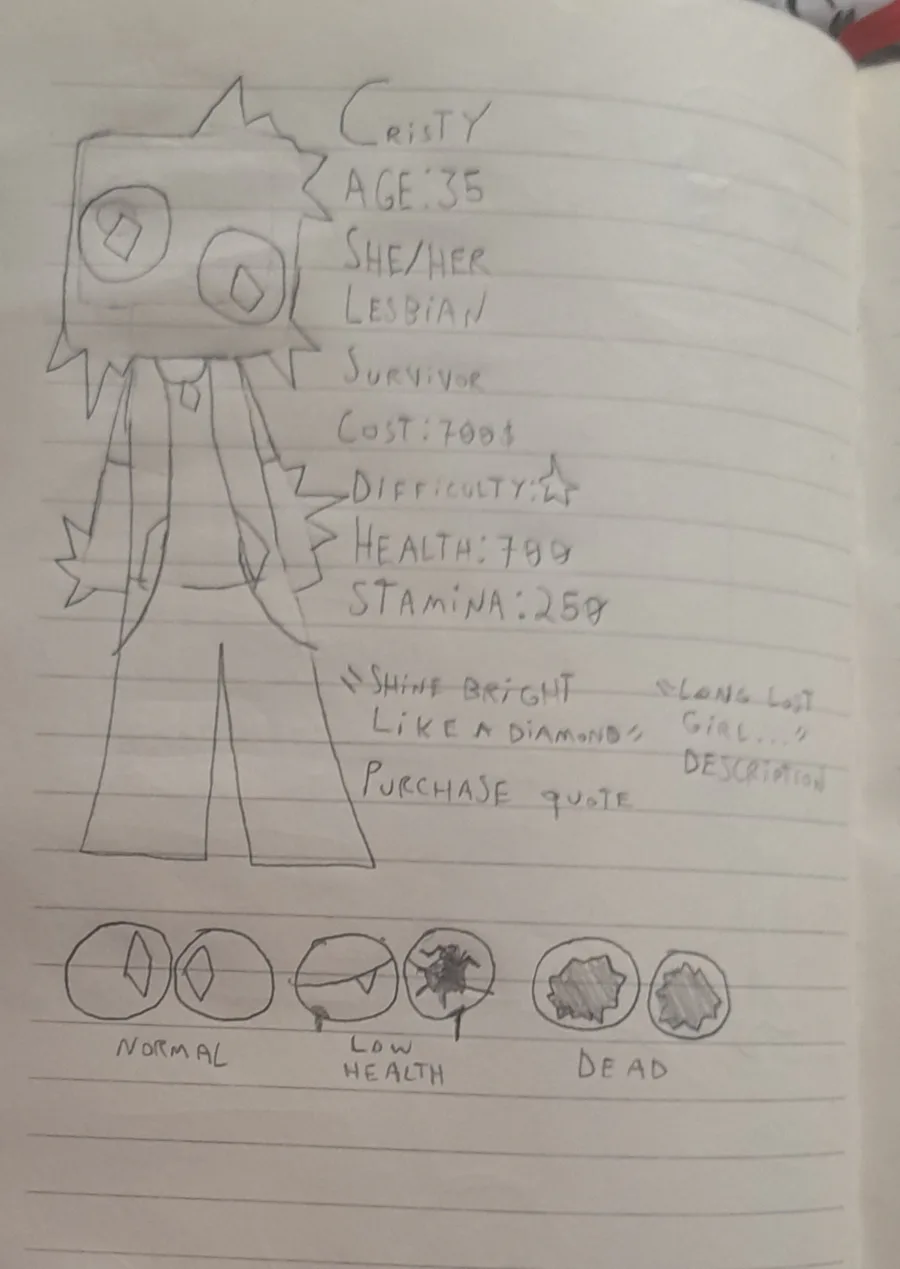 CRiSTY
AGE:35
SHE/HER
LESBiAN
SURViVOR
COST:700$
DiFFiCULTY:☆
HEALTH:700
STAMiNA:250
"SHiNE BRiGHT
LiKE A DiAMOND"
PURCHASE QUOTE
"LONG LOST
GiRL..."
DESCRiPTiON
NORMAL
LOW
HEALTH
DEAD